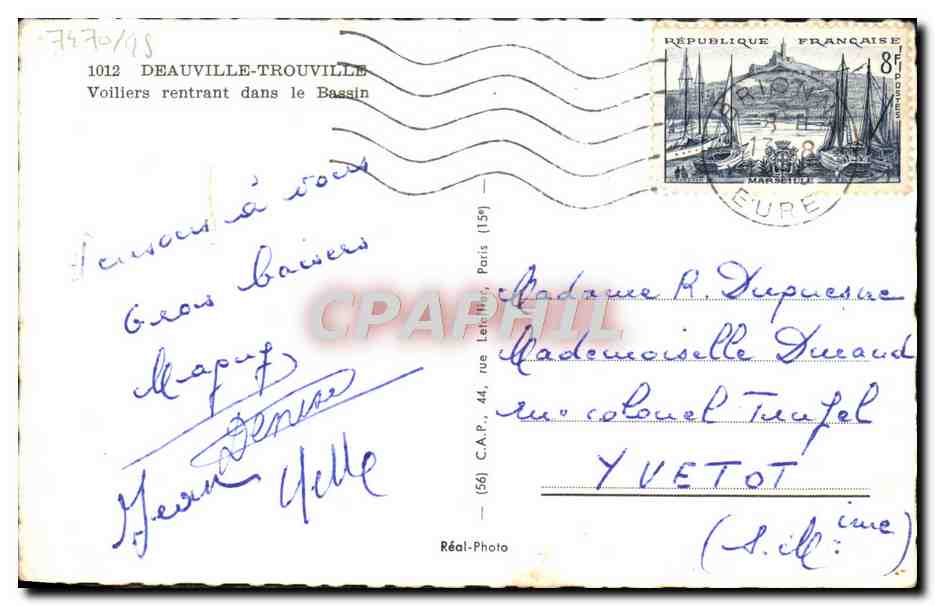 7470/19
1012 DEAUVILLE-TROUVILLE
Voiliers rentrant dans le Bassin
RÉPUBLIQUE FRANÇAISE
8F
POSTES
MARSEILLE
EURE
Pensons à vous
Gros baisers
Denise
Jean
(56) C.A.P., 44, rue Letellier, Paris (15e)
Réal-Photo
CPAPHIL
Madame R. Duquesne
Mademoiselle Durand
rue colonel Trupel
YVETOT
(S. Mime)